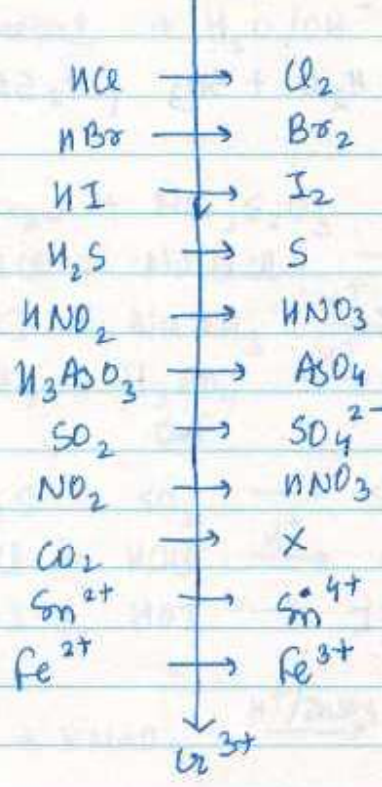 HCl → Cl₂
HBr → Br₂
HI → I₂
H₂S → S
HNO₂ → HNO₃
H₃AsO₃ → AsO₄
SO₂ → SO₄²⁻
NO₂ → HNO₃
CO₂ → X
Sn²⁺ → Sn⁴⁺
Fe²⁺ → Fe³⁺
Cr³⁺